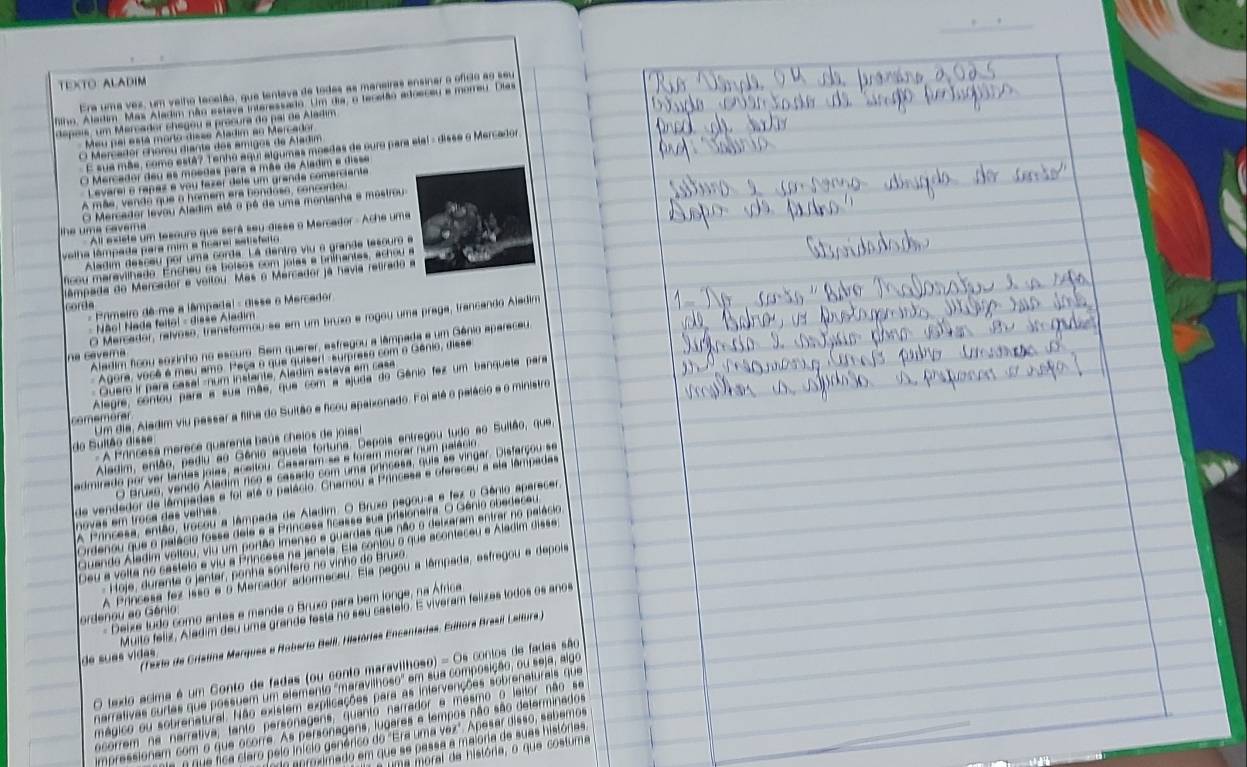 TEXTO ALADIM
Era uma vez, um velho tecelão, que tentava de todas as maneiras ensinar o ofício ao seu
filho, Aladim. Mas Aladim não estava interessado. Um dia, o tecelão adoeceu e morreu. Dias
depois, um Mercador chegou a procura do pai de Aladim.
- Meu pai está morto-disse Aladim ao Mercador.
O Mercador chorou diante dos amigos de Aladim.
- E sua mãe, como está? Tenho aqui algumas moedas de ouro para ela! - disse o Mercador.
O Mercador deu as moedas para a mãe de Aladim e disse
- Levarei o rapaz e vou fazer dele um grande comerciante
A mãe, vendo que o homem era bondoso, concordou.
O Mercador levou Aladim até o pé de uma montanha e mostrou-
lhe uma caverna
- Ali existe um tesouro que será seu-disse o Mercador - Ache uma
velha lâmpada para mim e ficarei satisfeito
Aladim desceu por uma corda. Lá dentro viu o grande tesouro e
ficou maravilhado. Encheu os bolsos com joias e brilhantes, achou a
lâmpada do Mercador e voltou. Mas o Mercador já havia retirado a
corda
- Primeiro dê-me a lâmpada! - disse o Mercador.
- Não! Nada feito! - disse Aladim
O Mercador, raivoso, transformou-se em um bruxo e rogou uma praga, trancando Aladim
na caverna
Aladim ficou sozinho no escuro. Sem querer, esfregou a lâmpada e um Gênio apareceu.
- Agora, você é meu amo. Peça o que quiser! - surpreso com o Gênio, disse
- Quero ir para casa! -num instante, Aladim estava em casa
Alegre, contou para a sua mãe, que com a ajuda do Gênio fez um banquete para
comemorar.
Um dia, Aladim viu passar a filha do Sultão e ficou apaixonado. Foi até o palácio e o ministro
do Sultão disse:
- A Princesa merece quarenta baús cheios de joias!
Aladim, então, pediu ao Gênio aquela fortuna. Depois entregou tudo ao Sultão, que,
admirado por ver tantas joias, aceitou. Casaram-se e foram morar num palácio
O Bruxo, vendo Aladim rico e casado com uma princesa, quis se vingar. Disfarçou-se
de vendedor de lâmpadas e foi até o palácio. Chamou a Princesa e ofereceu a ela lâmpadas
novas em troca das velhas
A Princesa, então, trocou a lâmpada de Aladim. O Bruxo pegou-a e fez o Gênio aparecer.
Ordenou que o palácio fosse dele e a Princesa ficasse sua prisioneira. O Gênio obedeceu.
Quando Aladim voltou, viu um portão imenso e guardas que não o deixaram entrar no palácio
Deu a volta no castelo e viu a Princesa na janela. Ela contou o que aconteceu e Aladim disse:
- Hoje, durante o jantar, ponha sonífero no vinho do Bruxo.
A Princesa fez isso e o Mercador adormeceu. Ela pegou a lâmpada, esfregou e depois
ordenou ao Gênio:
- Deixe tudo como antes e mande o Bruxo para bem longe, na África
Muito feliz, Aladim deu uma grande festa no seu castelo. E viveram felizes todos os anos
de suas vidas.
(Texto de Cristina Marques e Roberto Belli. Histórias Encantadas. Editora Brasil Leitura.)
O texto acima é um Conto de fadas (ou conto maravilhoso) = Os contos de fadas são
narrativas curtas que possuem um elemento "maravilhoso" em sua composição, ou seja, algo
mágico ou sobrenatural. Não existem explicações para as intervenções sobrenaturais que
ocorrem na narrativa, tanto personagens, quanto narrador e mesmo o leitor não se
impressionam com o que ocorre. As personagens, lugares e tempos não são determinados
o que fica claro pelo início genérico do "Era uma vez". Apesar disso, sabemos
aproximado em que se passa a maioria de suas histórias.
uma moral da história, o que costuma
04 de 2025
Estudo orientado de língua portuguesa
Prof:
Leitura e
Sopa de pedra"
Atividades
1- No conto "Pedro Malasartes e a sopa
de Pedra", o protagonista utiliza sua inte
ligência e para obter os ingredien
Pedro
mulher a ajudá-lo a preparar a sopa?